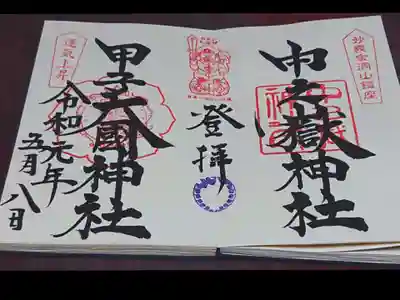 妙義金洞山鎮座
中之嶽神社
登拝
運氣上昇
甲子大國神社
令和元年
五月八日